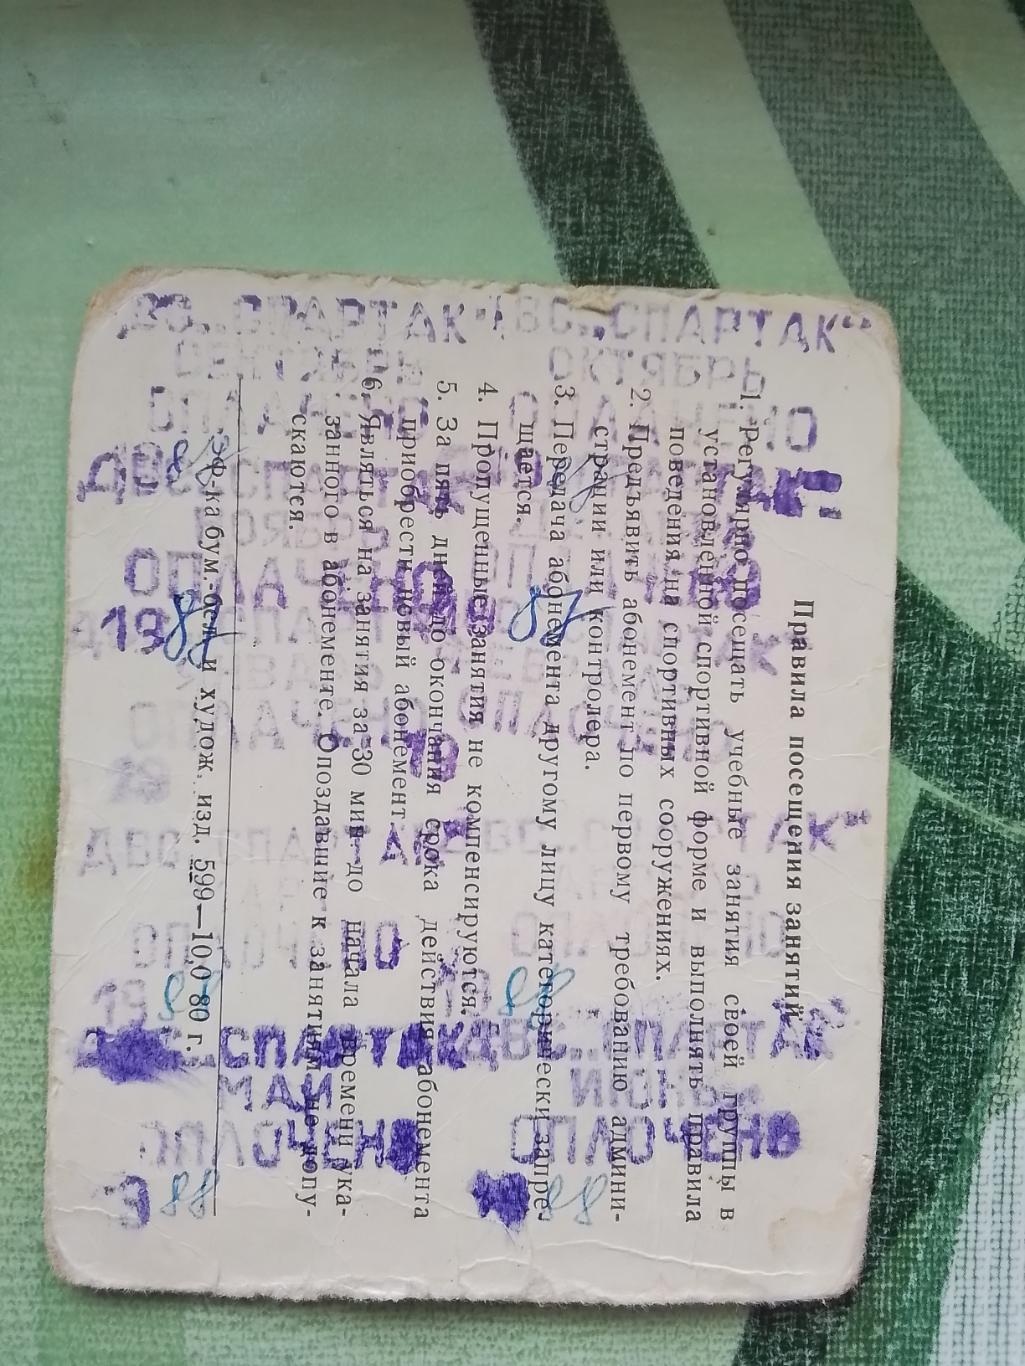 Правила посещения занятий
1. Регулярно посещать учебные занятия своей группы в
установленной спортивной форме и выполнять правила
поведения на спортивных сооружениях.
2. Предъявить абонемент по первому требованию админи-
страции или контролера.
3. Передача абонемента другому лицу категорически запре-
щается.
4. Пропущенные занятия не компенсируются.
5. За пять дней до окончания срока действия абонемента
приобрести новый абонемент.
6. Являться на занятия за 30 мин до начала времени ука-
занного в абонементе. Опоздавшие к занятиям не допу-
скаются.
Эф-ка бум.-бел. и худож. изд. 599—10,0 80 г.
ДВС „СПАРТАК" ДВС „СПАРТАК"
СЕНТЯБРЬ ОКТЯБРЬ
ОПЛАЧЕНО ОПЛАЧЕНО
88
ДВС „СПАРТАК
НОЯБРЬ
ОПЛАЧЕНО
1988 88
ДВС „СПАРТАК
ЯНВАРЬ ФЕВРАЛЬ
ОПЛАЧЕНО ОПЛАЧЕНО
19
ДВС „СПАРТАК" ДВС „СПАРТАК"
МАРТ
ОПЛОЧЕНО ОПЛОЧЕНО
1988 88
СПАРТАК ДВС „СПАРТАК
МАЙ ИЮНЬ
ОПЛОЧЕНО ОПЛОЧЕНО
88 88